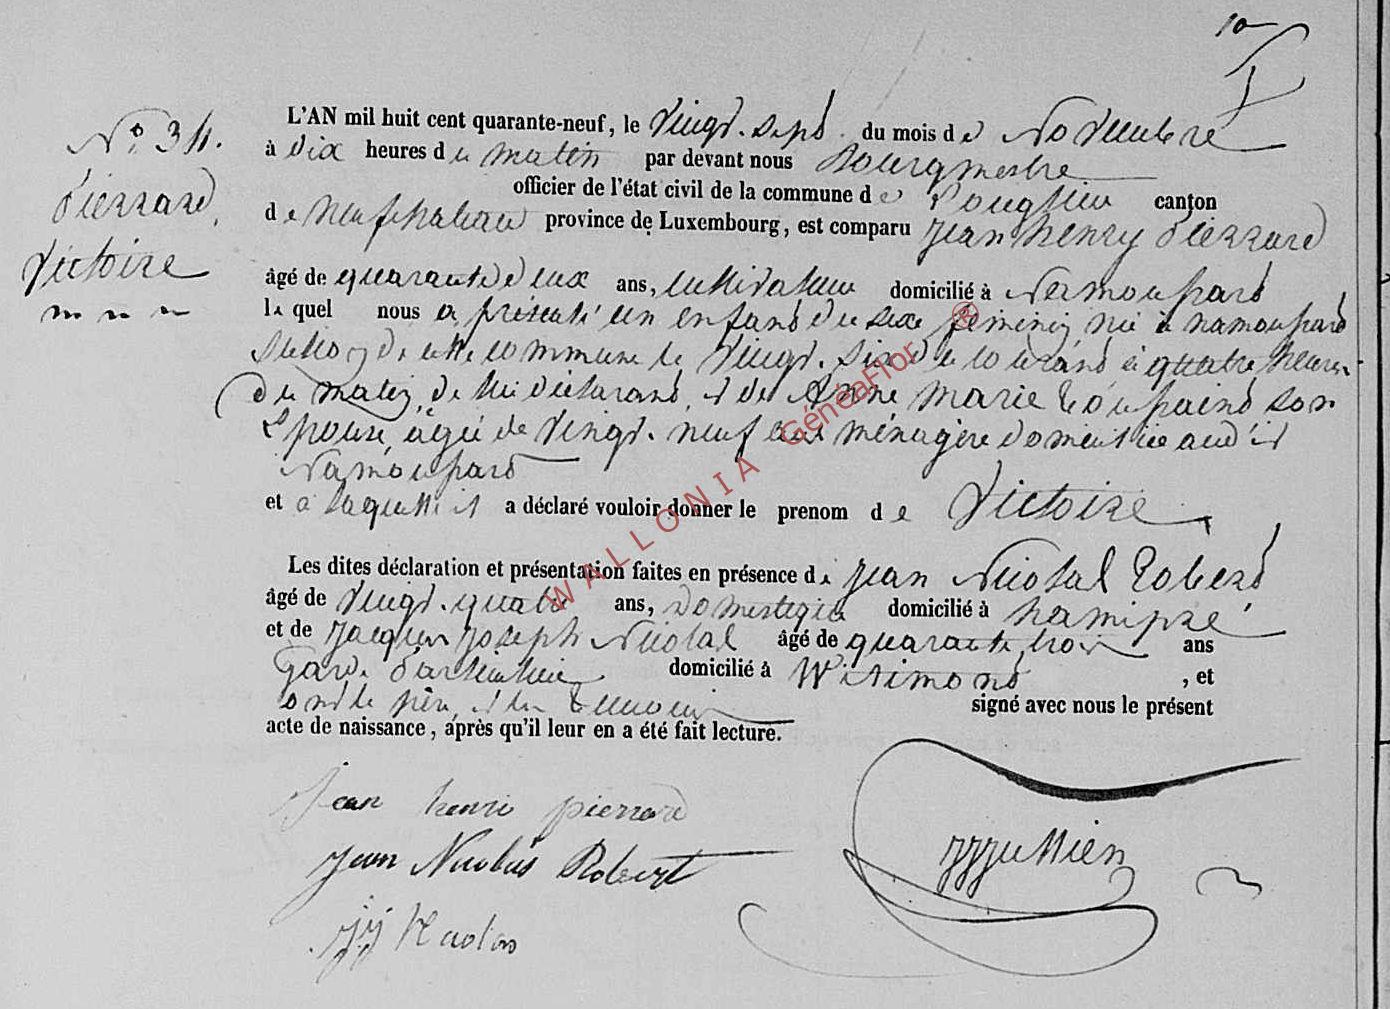 10
N° 34.
Pierrard,
Victoire
L'AN mil huit cent quarante-neuf, le Vingt-sept du mois de Novembre
à dix heures du matin par devant nous Bourgmestre
officier de l'état civil de la commune de Longlier canton
de Neufchateau province de Luxembourg, est comparu Jean henry Pierrard
âgé de quarante deux ans, cultivateur domicilié à Namoussard
lequel nous a présenté un enfant du sexe féminin née à namoussard
section de cette commune le Vingt-six du courant à quatre heures
du matin, de lui déclarant, et de Anne marie son
Epouse, agée de Vingt-neuf ans ménagère domiciliée audit
Namoussard
et à laquelle il a déclaré vouloir donner le prenom de Victoire
Les dites déclaration et présentation faites en présence de Jean Nicolas Robert
âgé de Vingt-quatre ans, Domestique domicilié à hamipré
et de Jacques Joseph Nicolas âgé de quarante trois ans
Garde particulier domicilié à Witimont , et
ont le père, et les témoins signé avec nous le présent
acte de naissance, après qu'il leur en a été fait lecture.
jean henri pierrard
Jean Nicolas Robert
JJ Nicolas
WALLONIA GénéaFlor ®